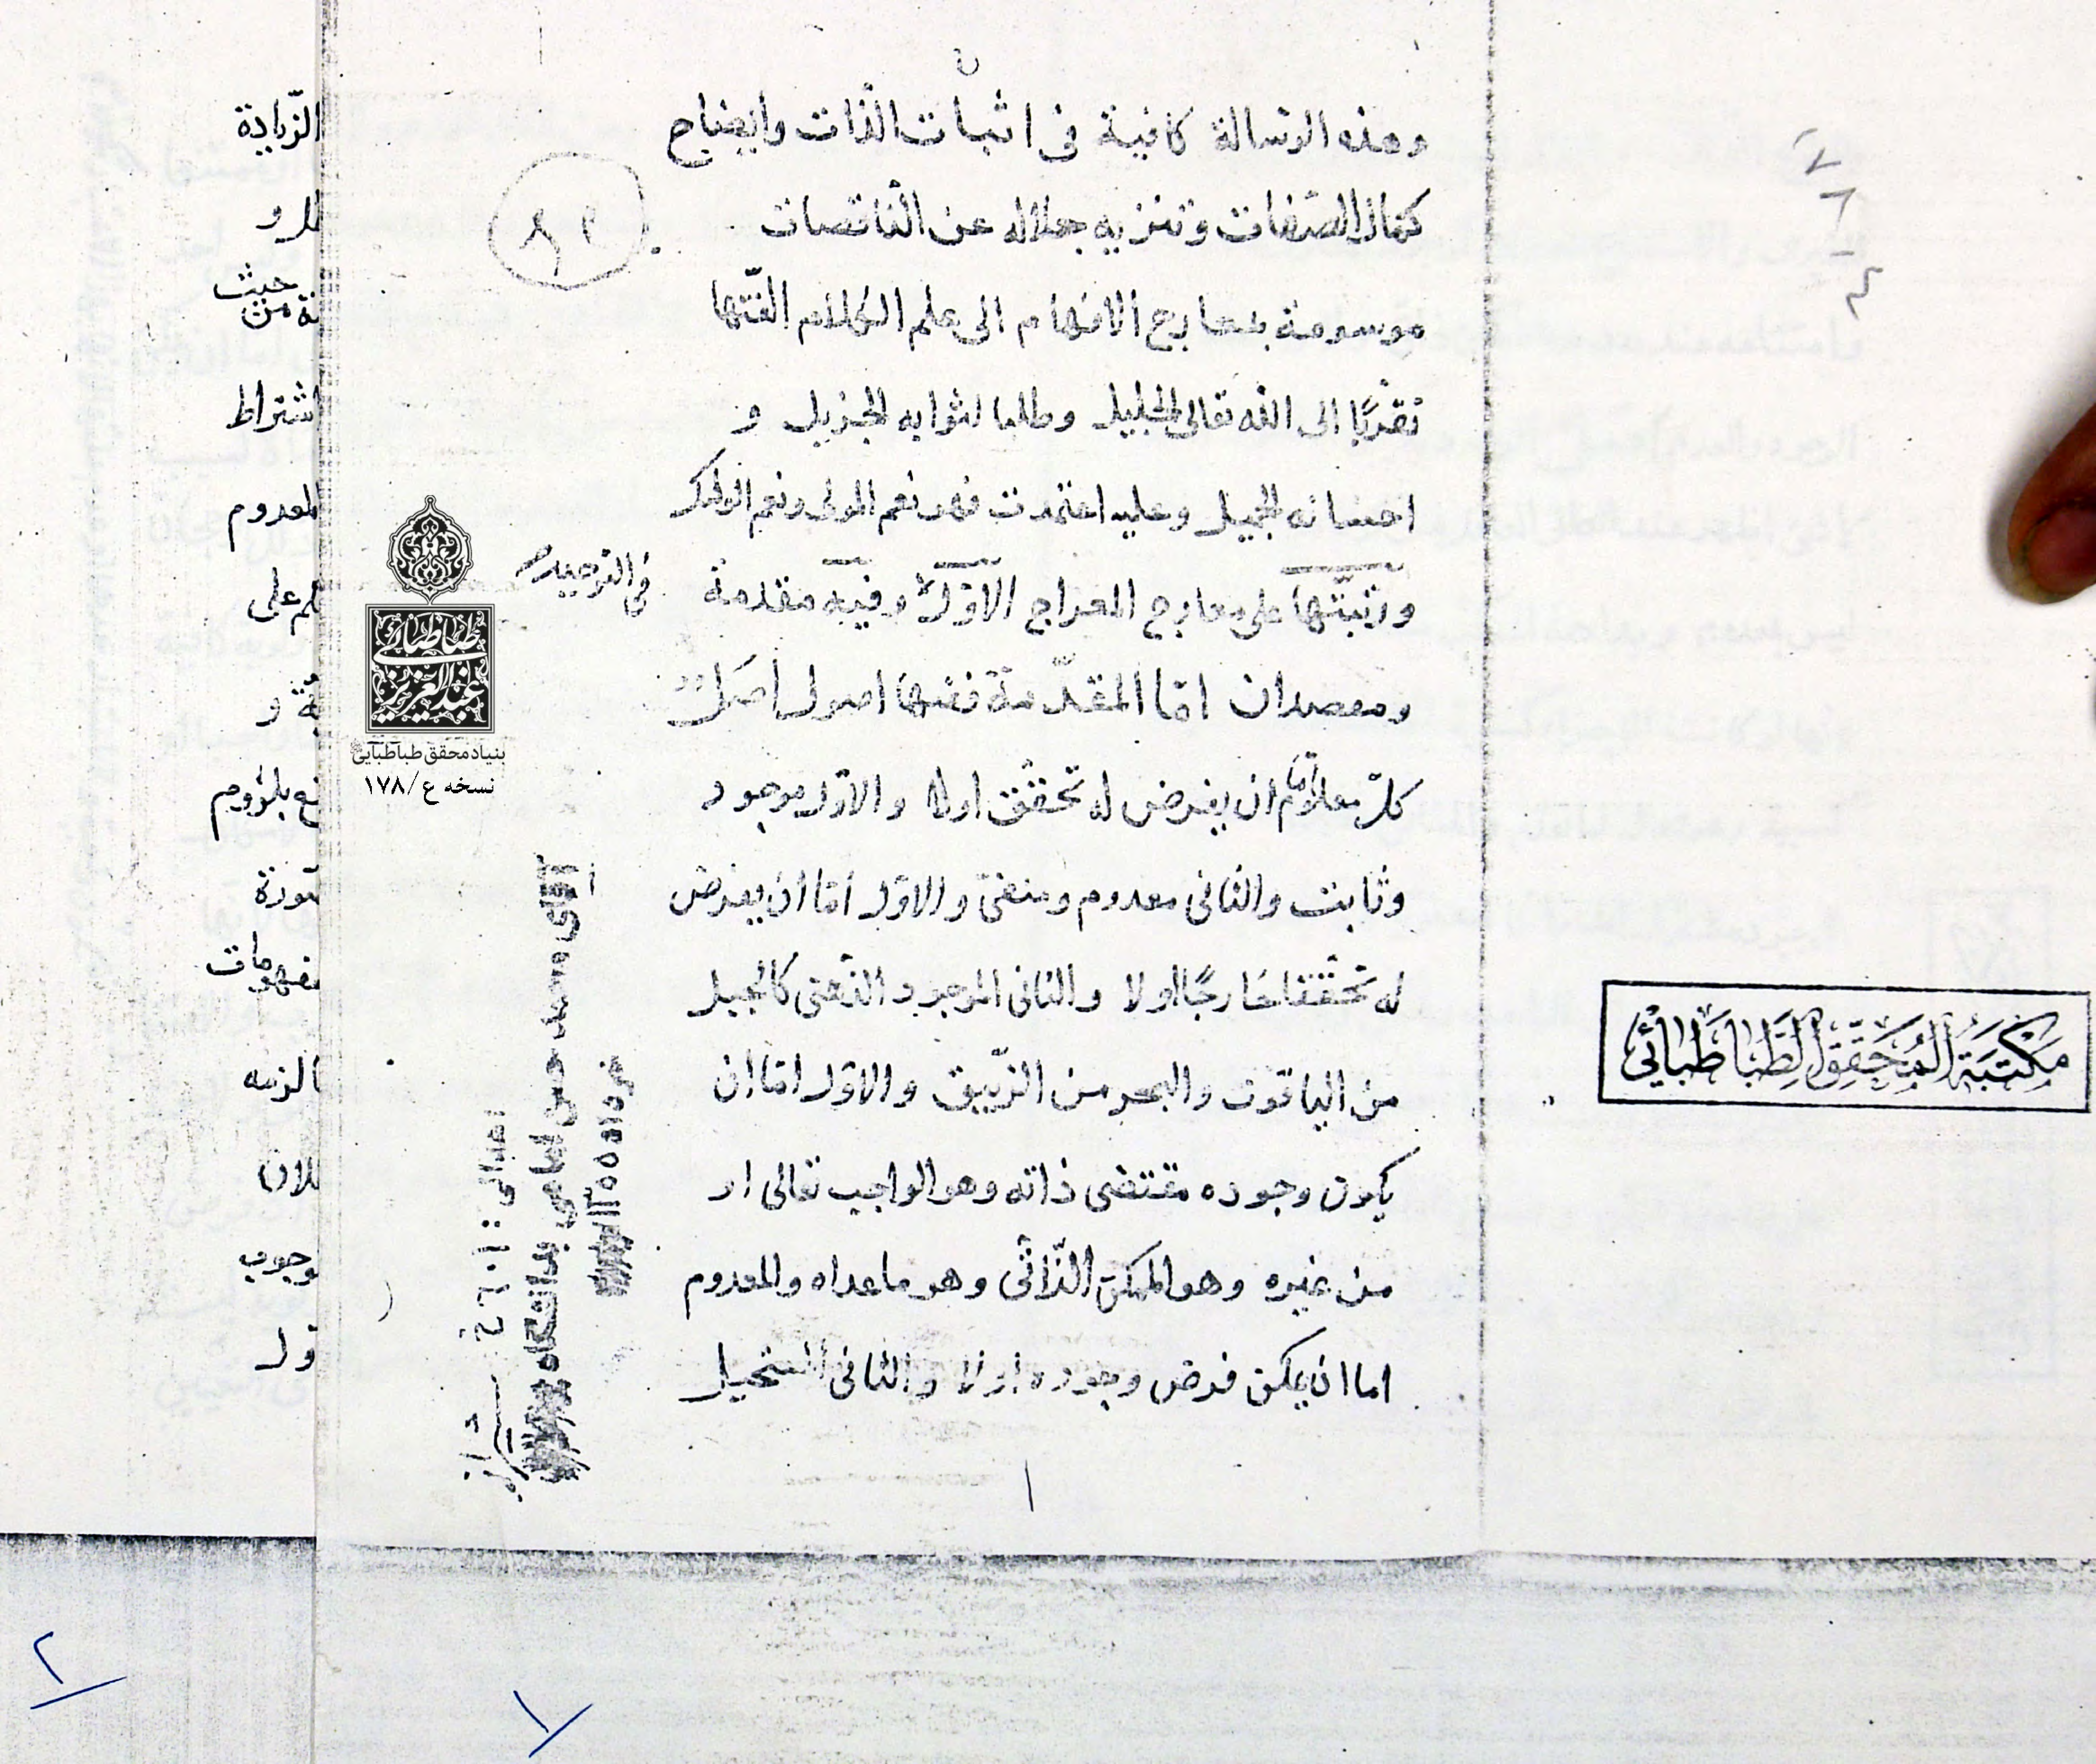 وهذه الرسالة كافية فى اثبات الذات وايضاح
كمال الصفات وتنزيه جلاله عن الناقصات
موسومة بمعارج الافهام الى علم الكلام الفتها
تقربًا الى الله تعالى الجليل وطلبا لثوابه الجزيل و
احسانه الجميل وعليه اعتمدت فهو نعم المولى ونعم الوكيل
ورتبتها على معارج المعراج الاول وفيه مقدمة
فى التوحيد
ومقصدان امّا المقدّمة ففيها اصول اصل
كلّ معلوم امّا ان يفرض له تحقق اولا والاوّل موجود
وثابت والثانى معدوم ومنفى والاوّل امّا ان يفرض
له تحقّقا خارجًا اولا والثانى الموجود الذّهنى كالجبل
من الياقوت والبحر من الزّيبق والاوّل امّا ان
يكون وجوده مقتضى ذاته وهو الواجب تعالى او
من غيره وهو الممكن الذّاتى وهو ما عداه والمعدوم
اما ان يمكن فرض وجوده اولا والثانى المستحيل
١
الزّيادة
حيث
اشتراط
المعدوم
بنیاد محقق طباطبایی
نسخه ع/۱۷۸
عبدالعزیز طباطبائی
مكتبة المحقق الطباطبائي
۲
۱